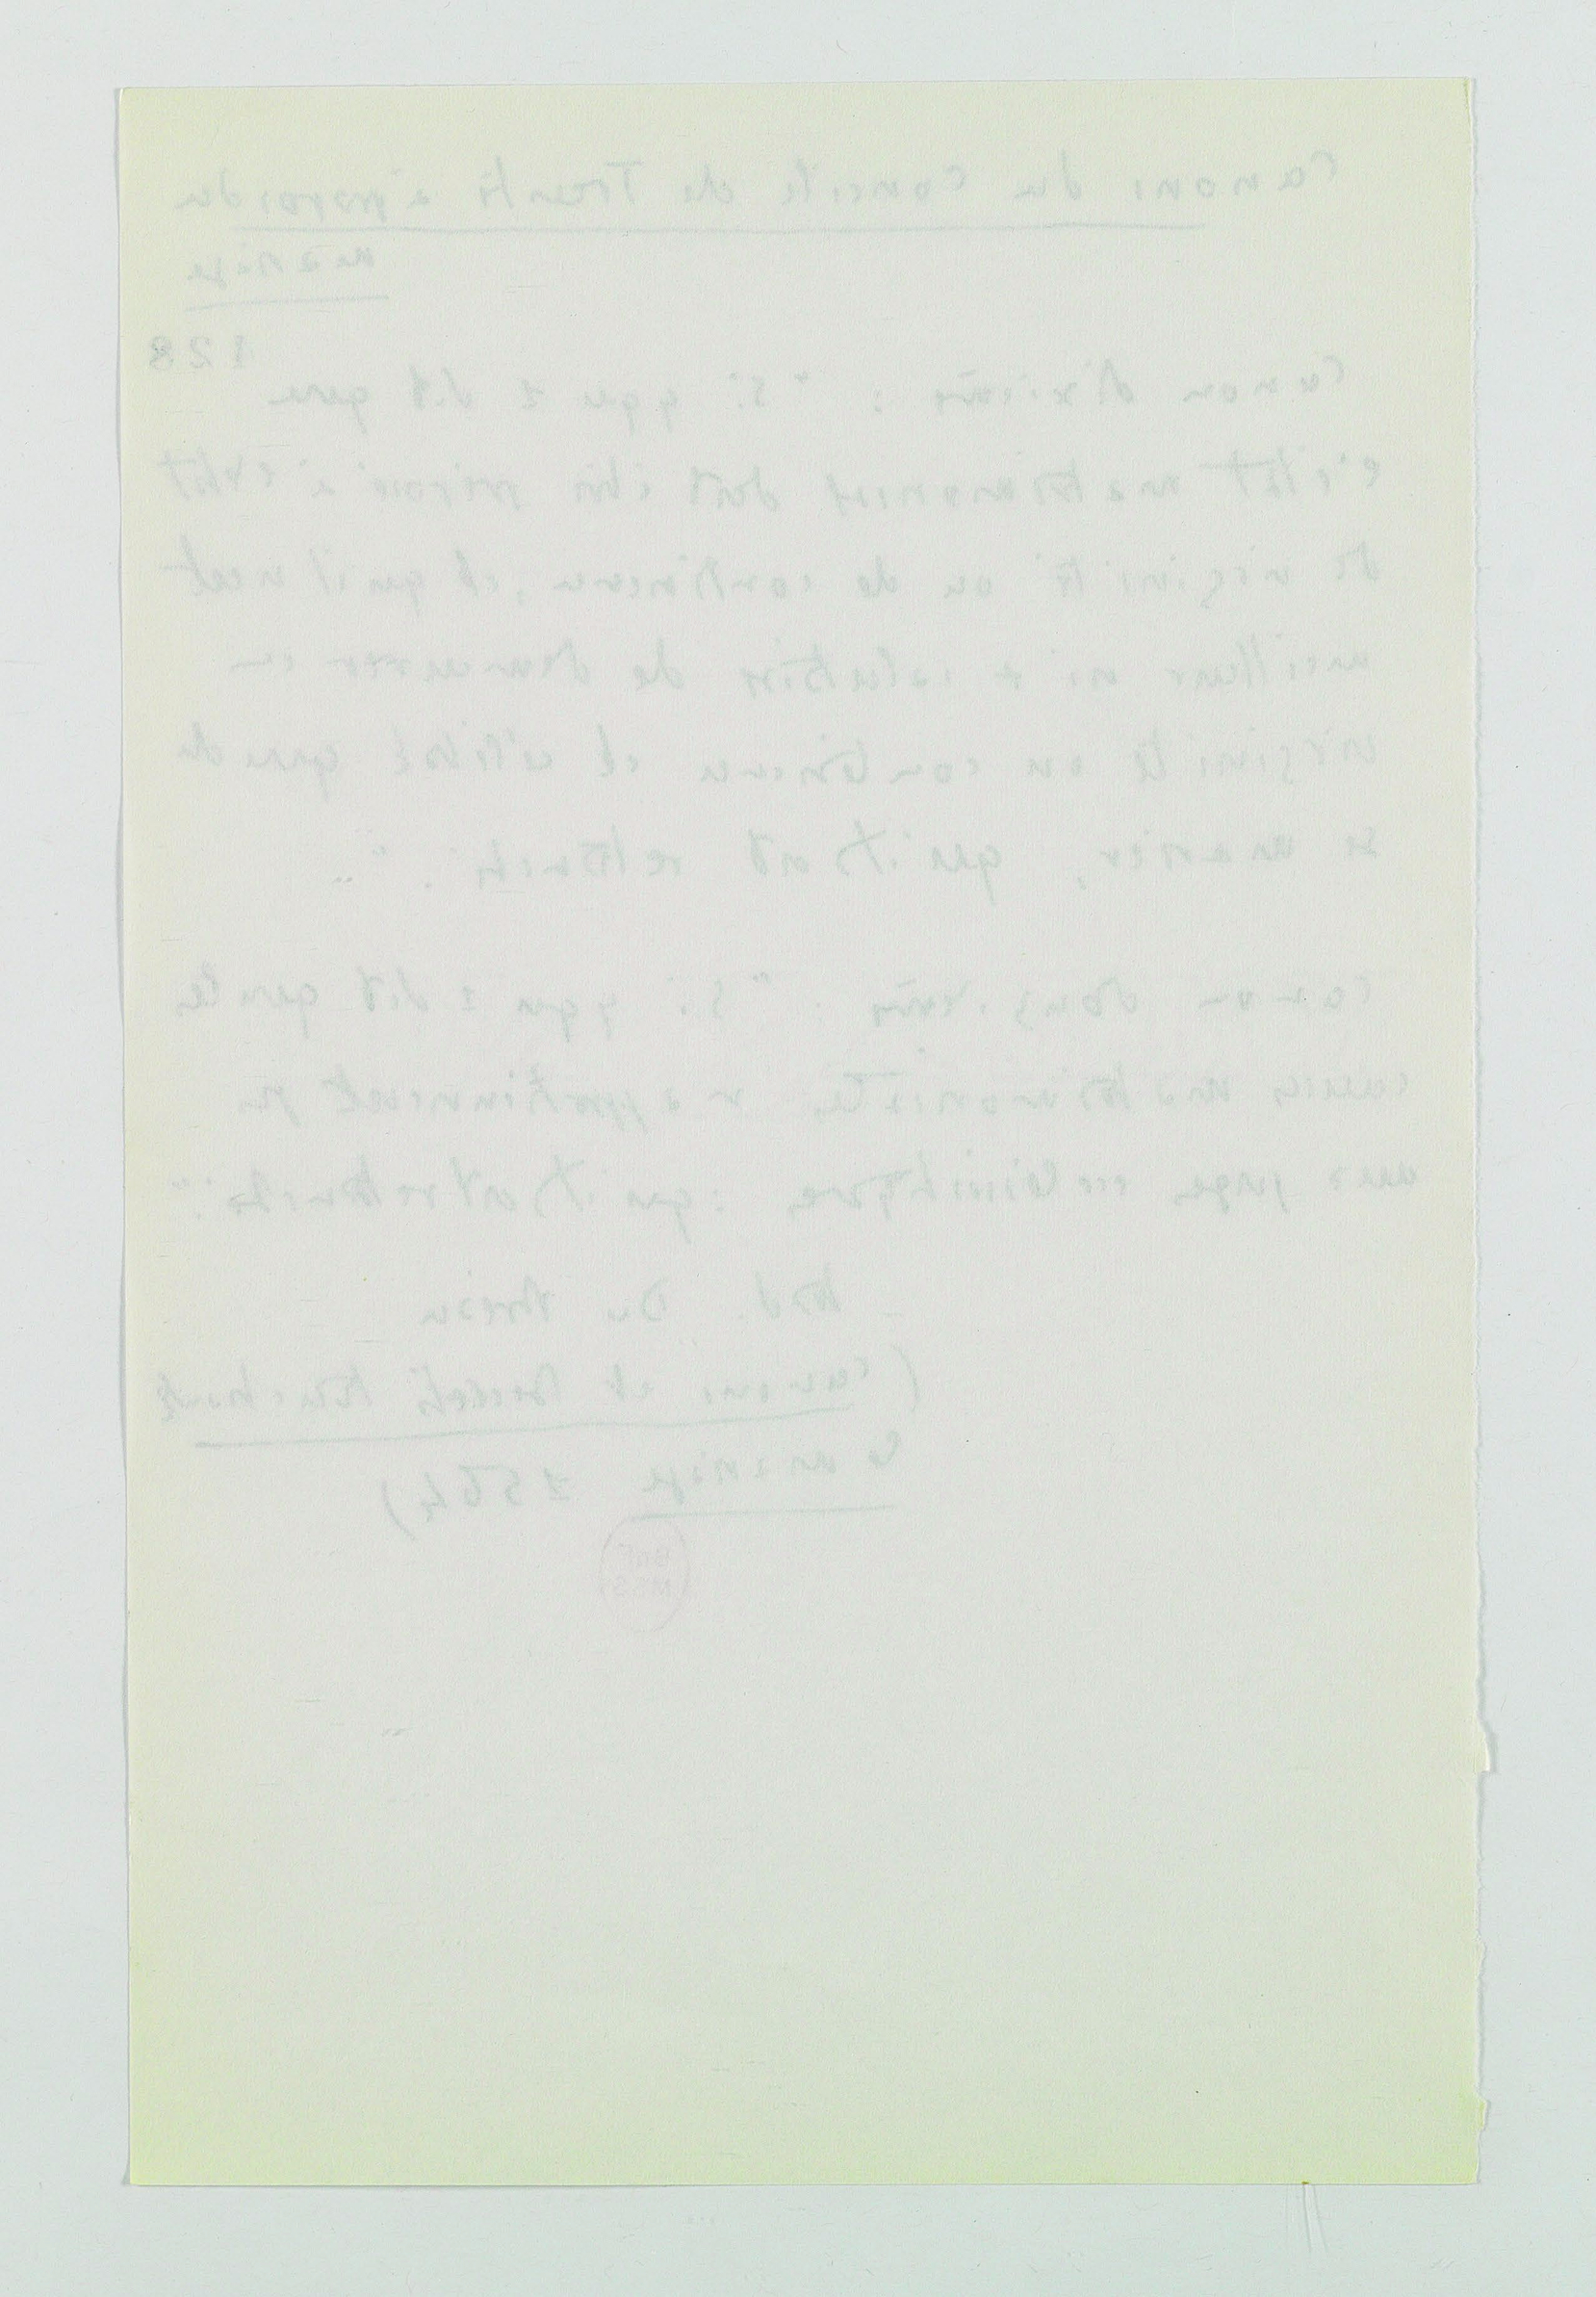 Canons du Concile de Trente à propos du
mariage
128
Canon dixième : "Si qqu 1 dit que
l'état matrimonial doit être préposé à l'état
de virginité ou de continence, et qu'il n'est
meilleur ni + salutaire de demeurer en
virginité ou continence et célibat que de
se marier, qu'il soit retranché."
Canon douzième : "Si qqu 1 dit que les
causes matrimoniales n'appartiennent pas
aux juges ecclésiastiques : qu'il soit retranché."
trad. Du
(Canons et décrets touchant
le mariage 1564)
BnF
MSS